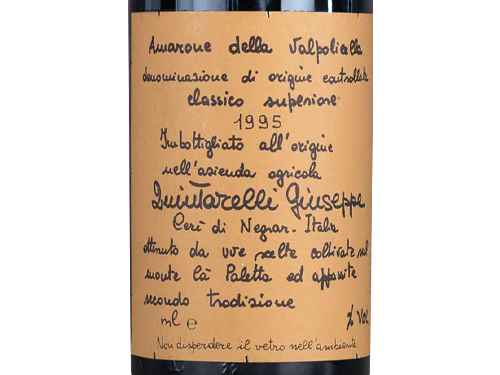 Amarone della Valpolicella
denominazione di origine controllata
classico superiore
1995
Imbottigliato all'origine
nell'azienda agricola
Quintarelli Giuseppe
Cerè di Negrar - Italia
ottenuto da uve scelte coltivate sul
monte Cà Paletta ed appassite
secondo tradizione
ml e % Vol.
Non disperdere il vetro nell'ambiente.